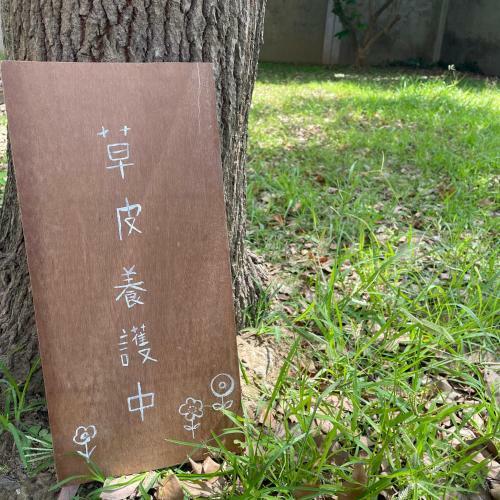 草皮養護中